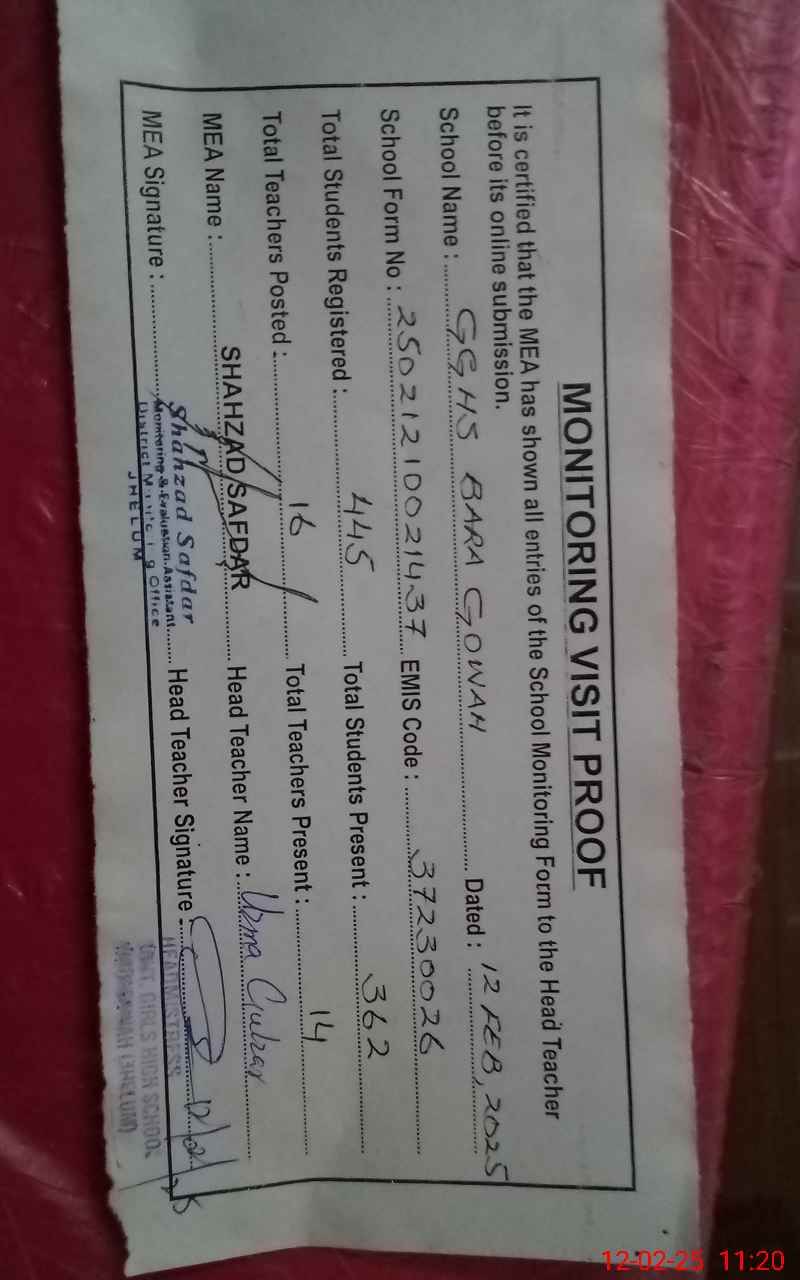 MONITORING VISIT PROOF
It is certified that the MEA has shown all entries of the School Monitoring Form to the Head Teacher
before its online submission.
School Name : GGHS BARA GOWAH Dated : 12 FEB, 2025
School Form No : 25021210021437 EMIS Code : 37230026
Total Students Registered : 445 Total Students Present : 362
Total Teachers Posted : 16 Total Teachers Present : 14
MEA Name : SHAHZAD SAFDAR Head Teacher Name : Uzma Gulzar
MEA Signature : Head Teacher Signature :
Shahzad Safdar
Monitoring & Evaluation Assistant
District Monitoring Office
JHELUM
HEADMISTRESS
GOVT. GIRLS HIGH SCHOOL
(JHELUM)
12-02-25 11:20